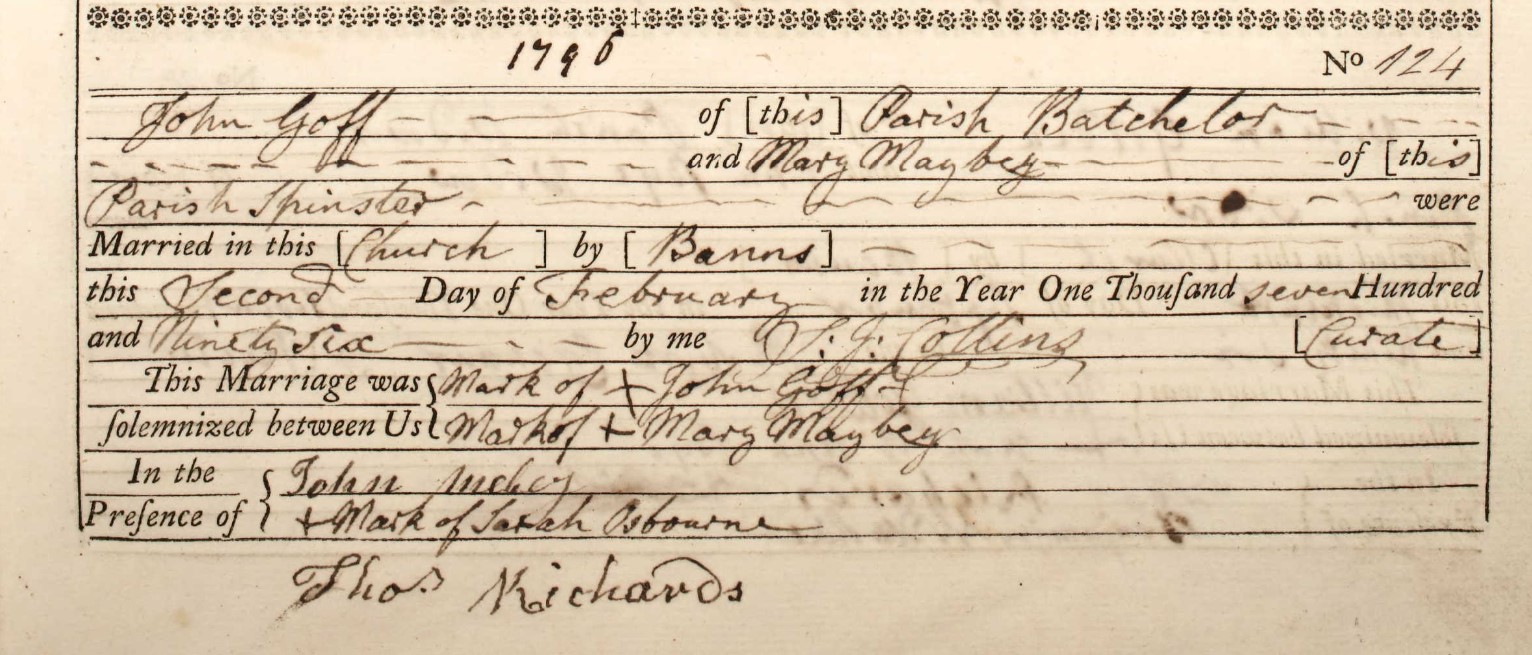 1796 No 124
John Goff of [this] Parish Batchelor
and Mary Maybey of [this]
Parish Spinster were
Married in this [Church] by [Banns]
this Second Day of February in the Year One Thouſand seven Hundred
and Ninety six by me Collins [Curate]
This Marriage was { Mark of + John Goff
ſolemnized between Us { Mark of + Mary Maybey
In the { John
Preſence of { + Mark of Sarah Osbourne
Thos Richards